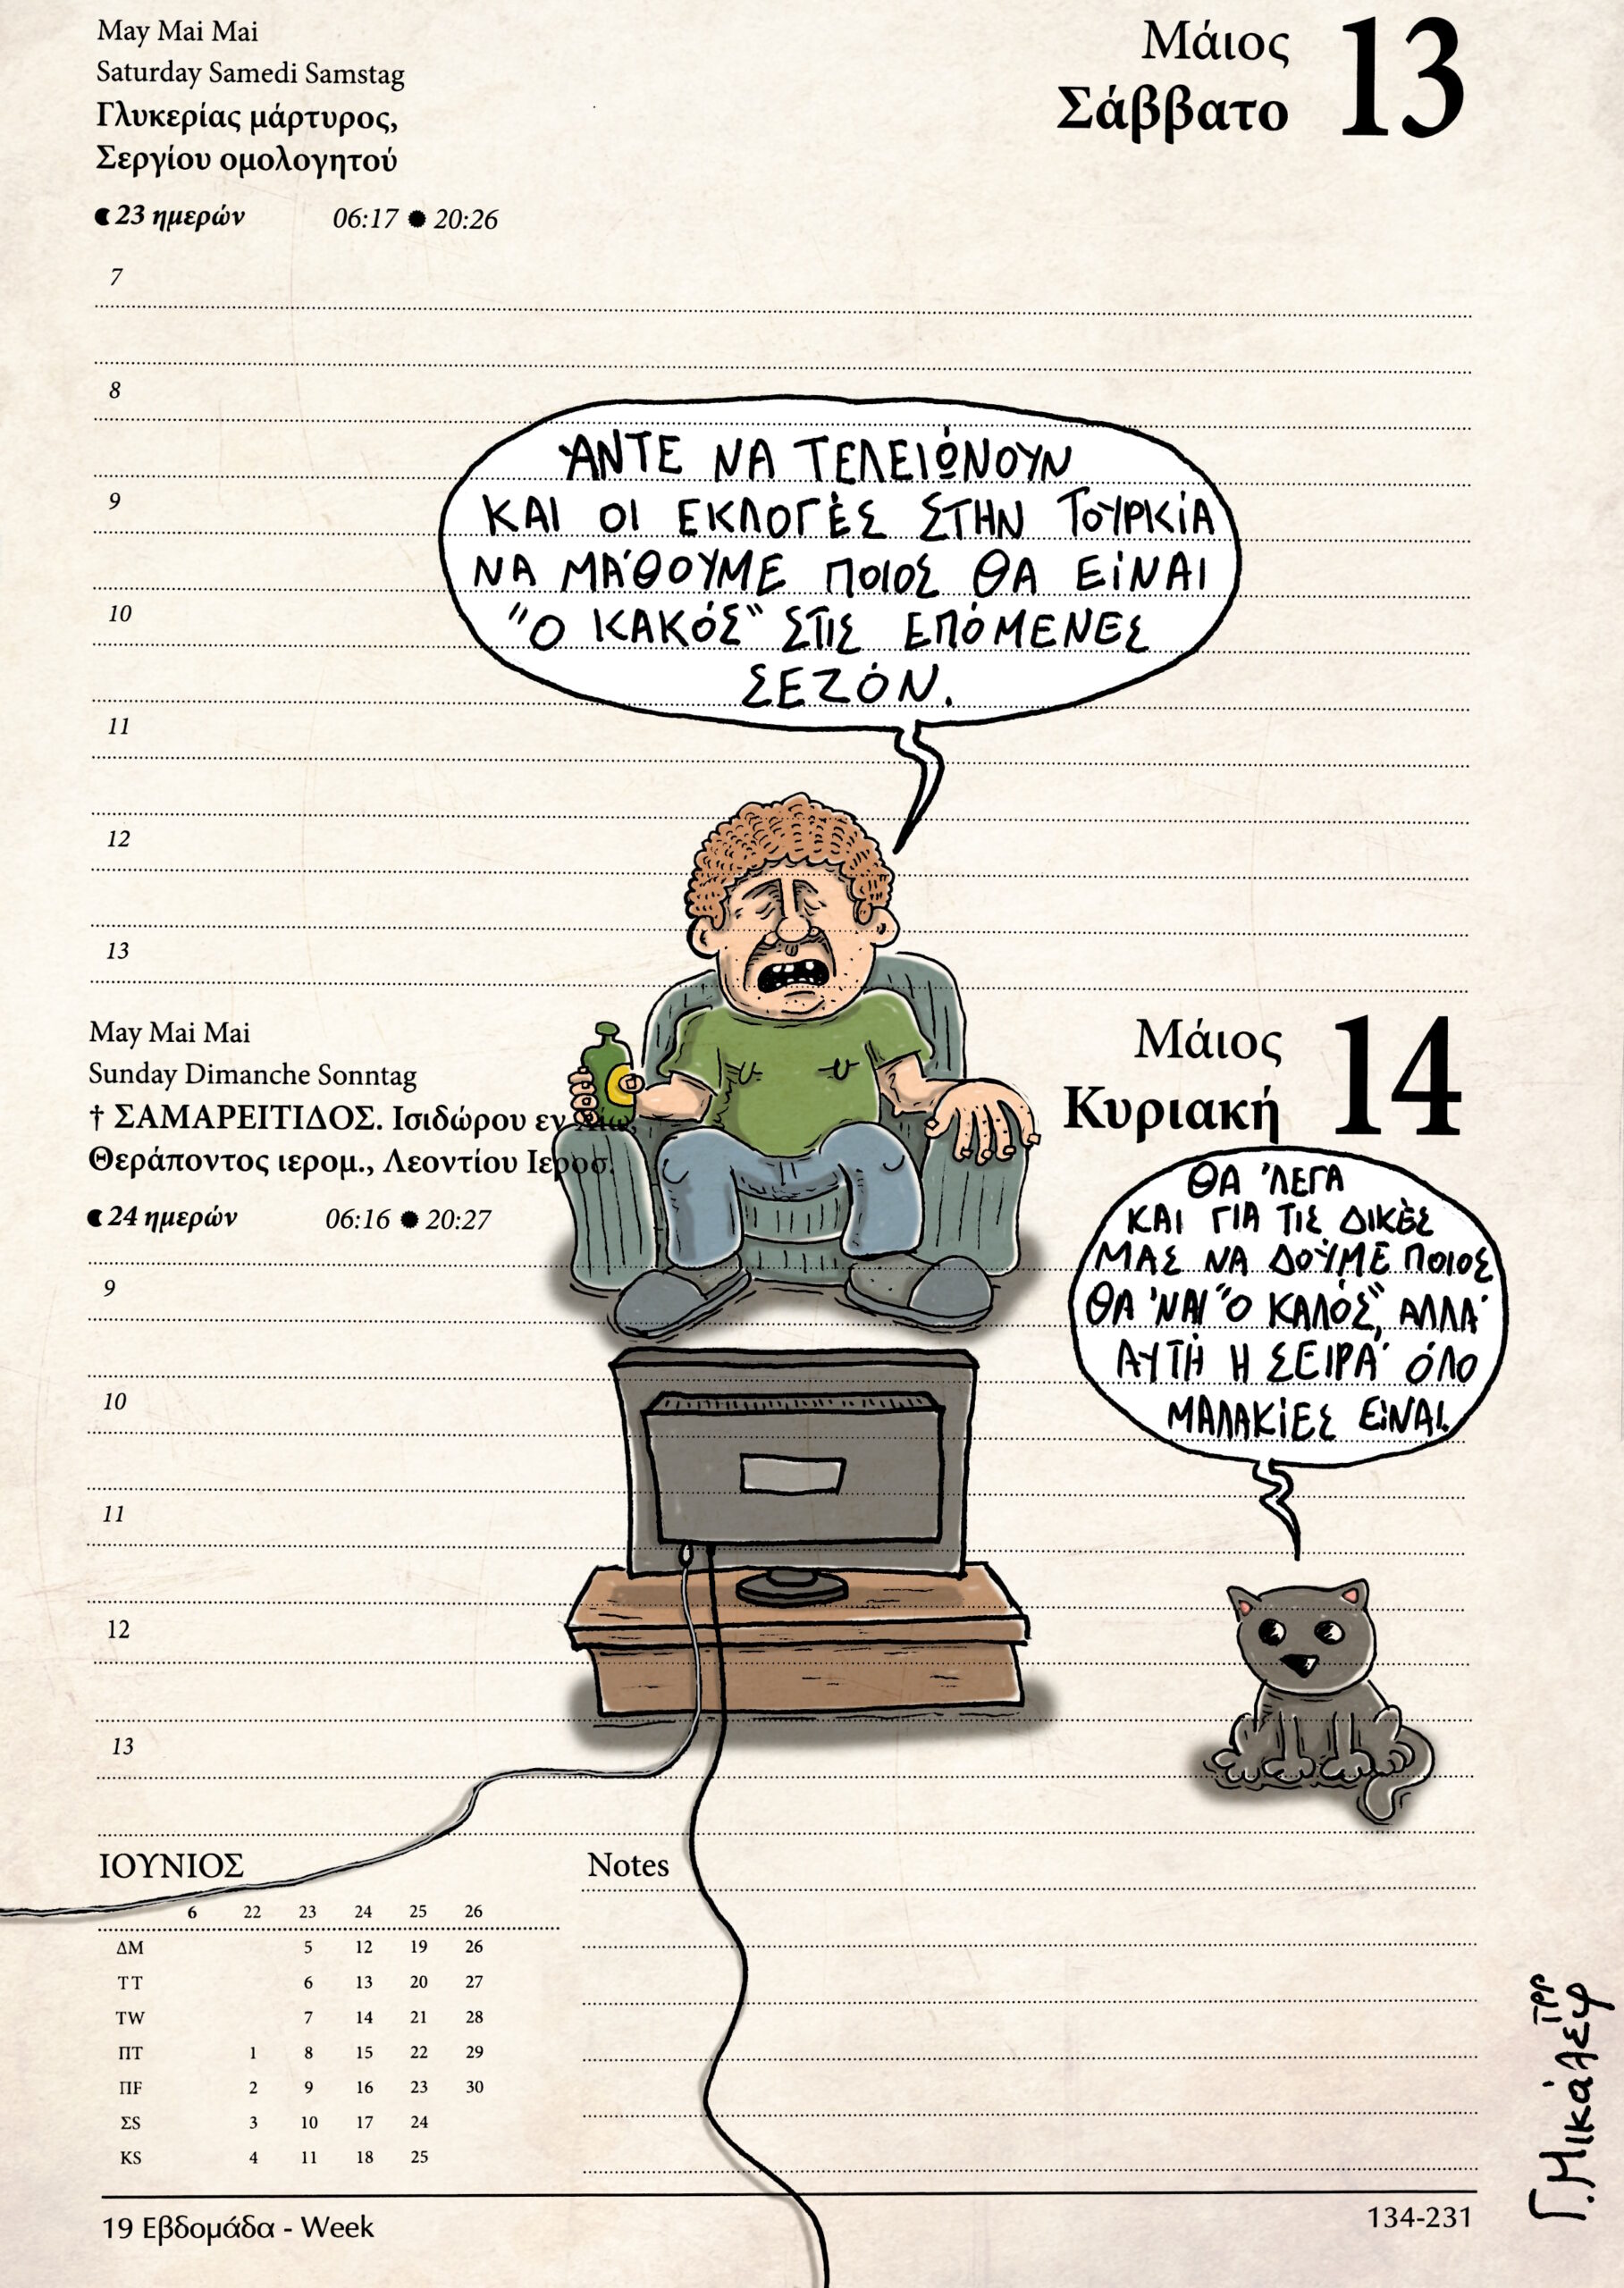 May Mai Mai
Saturday Samedi Samstag
Γλυκερίας μάρτυρος,
Σεργίου ομολογητού
23 ημερών 06:17 20:26
Μάιος
Σάββατο 13
7
8
ΆΝΤΕ ΝΑ ΤΕΛΕΙΏΝΟΥΝ
ΚΑΙ ΟΙ ΕΚΛΟΓΈΣ ΣΤΗΝ ΤΟΥΡΚΊΑ
ΝΑ ΜΆΘΟΥΜΕ ΠΟΙΟΣ ΘΑ ΕΊΝΑΙ
"Ο ΚΑΚΌΣ" ΣΤΙΣ ΕΠΌΜΕΝΕΣ
ΣΕΖΌΝ.
9
10
11
12
13
May Mai Mai
Sunday Dimanche Sonntag
† ΣΑΜΑΡΕΙΤΙΔΟΣ. Ισιδώρου εν Χίω,
Θεράποντος ιερομ., Λεοντίου Ιεροσ.
24 ημερών 06:16 20:27
Μάιος
Κυριακή 14
ΘΑ 'ΛΕΓΑ
ΚΑΙ ΓΙΑ ΤΙΣ ΔΙΚΈΣ
ΜΑΣ ΝΑ ΔΟΎΜΕ ΠΟΙΟΣ
ΘΑ 'ΝΑΙ "Ο ΚΑΛΌΣ", ΑΛΛΆ
ΑΥΤΉ Η ΣΕΙΡΆ ΌΛΟ
ΜΑΛΑΚΊΕΣ ΕΊΝΑΙ.
9
10
11
12
13
ΙΟΥΝΙΟΣ
6 22 23 24 25 26
ΔΜ 5 12 19 26
ΤΤ 6 13 20 27
ΤW 7 14 21 28
ΠΤ 1 8 15 22 29
ΠF 2 9 16 23 30
ΣS 3 10 17 24
KS 4 11 18 25
Notes
19 Εβδομάδα - Week
134-231
Γ. Μικάλεφ
τρρ